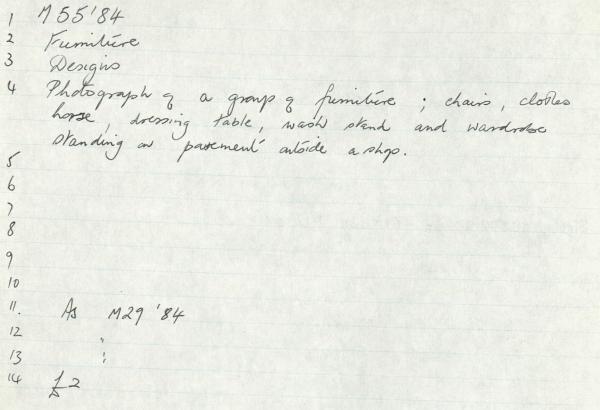 1 M55'84
2 Furniture
3 Designs
4 Photograph of a group of furniture ; chairs, clothes
horse, dressing table, wash stand and wardrobe
standing on pavement outside a shop.
5
6
7
8
9
10
11. As M29 '84
12 "
13 "
14 £2